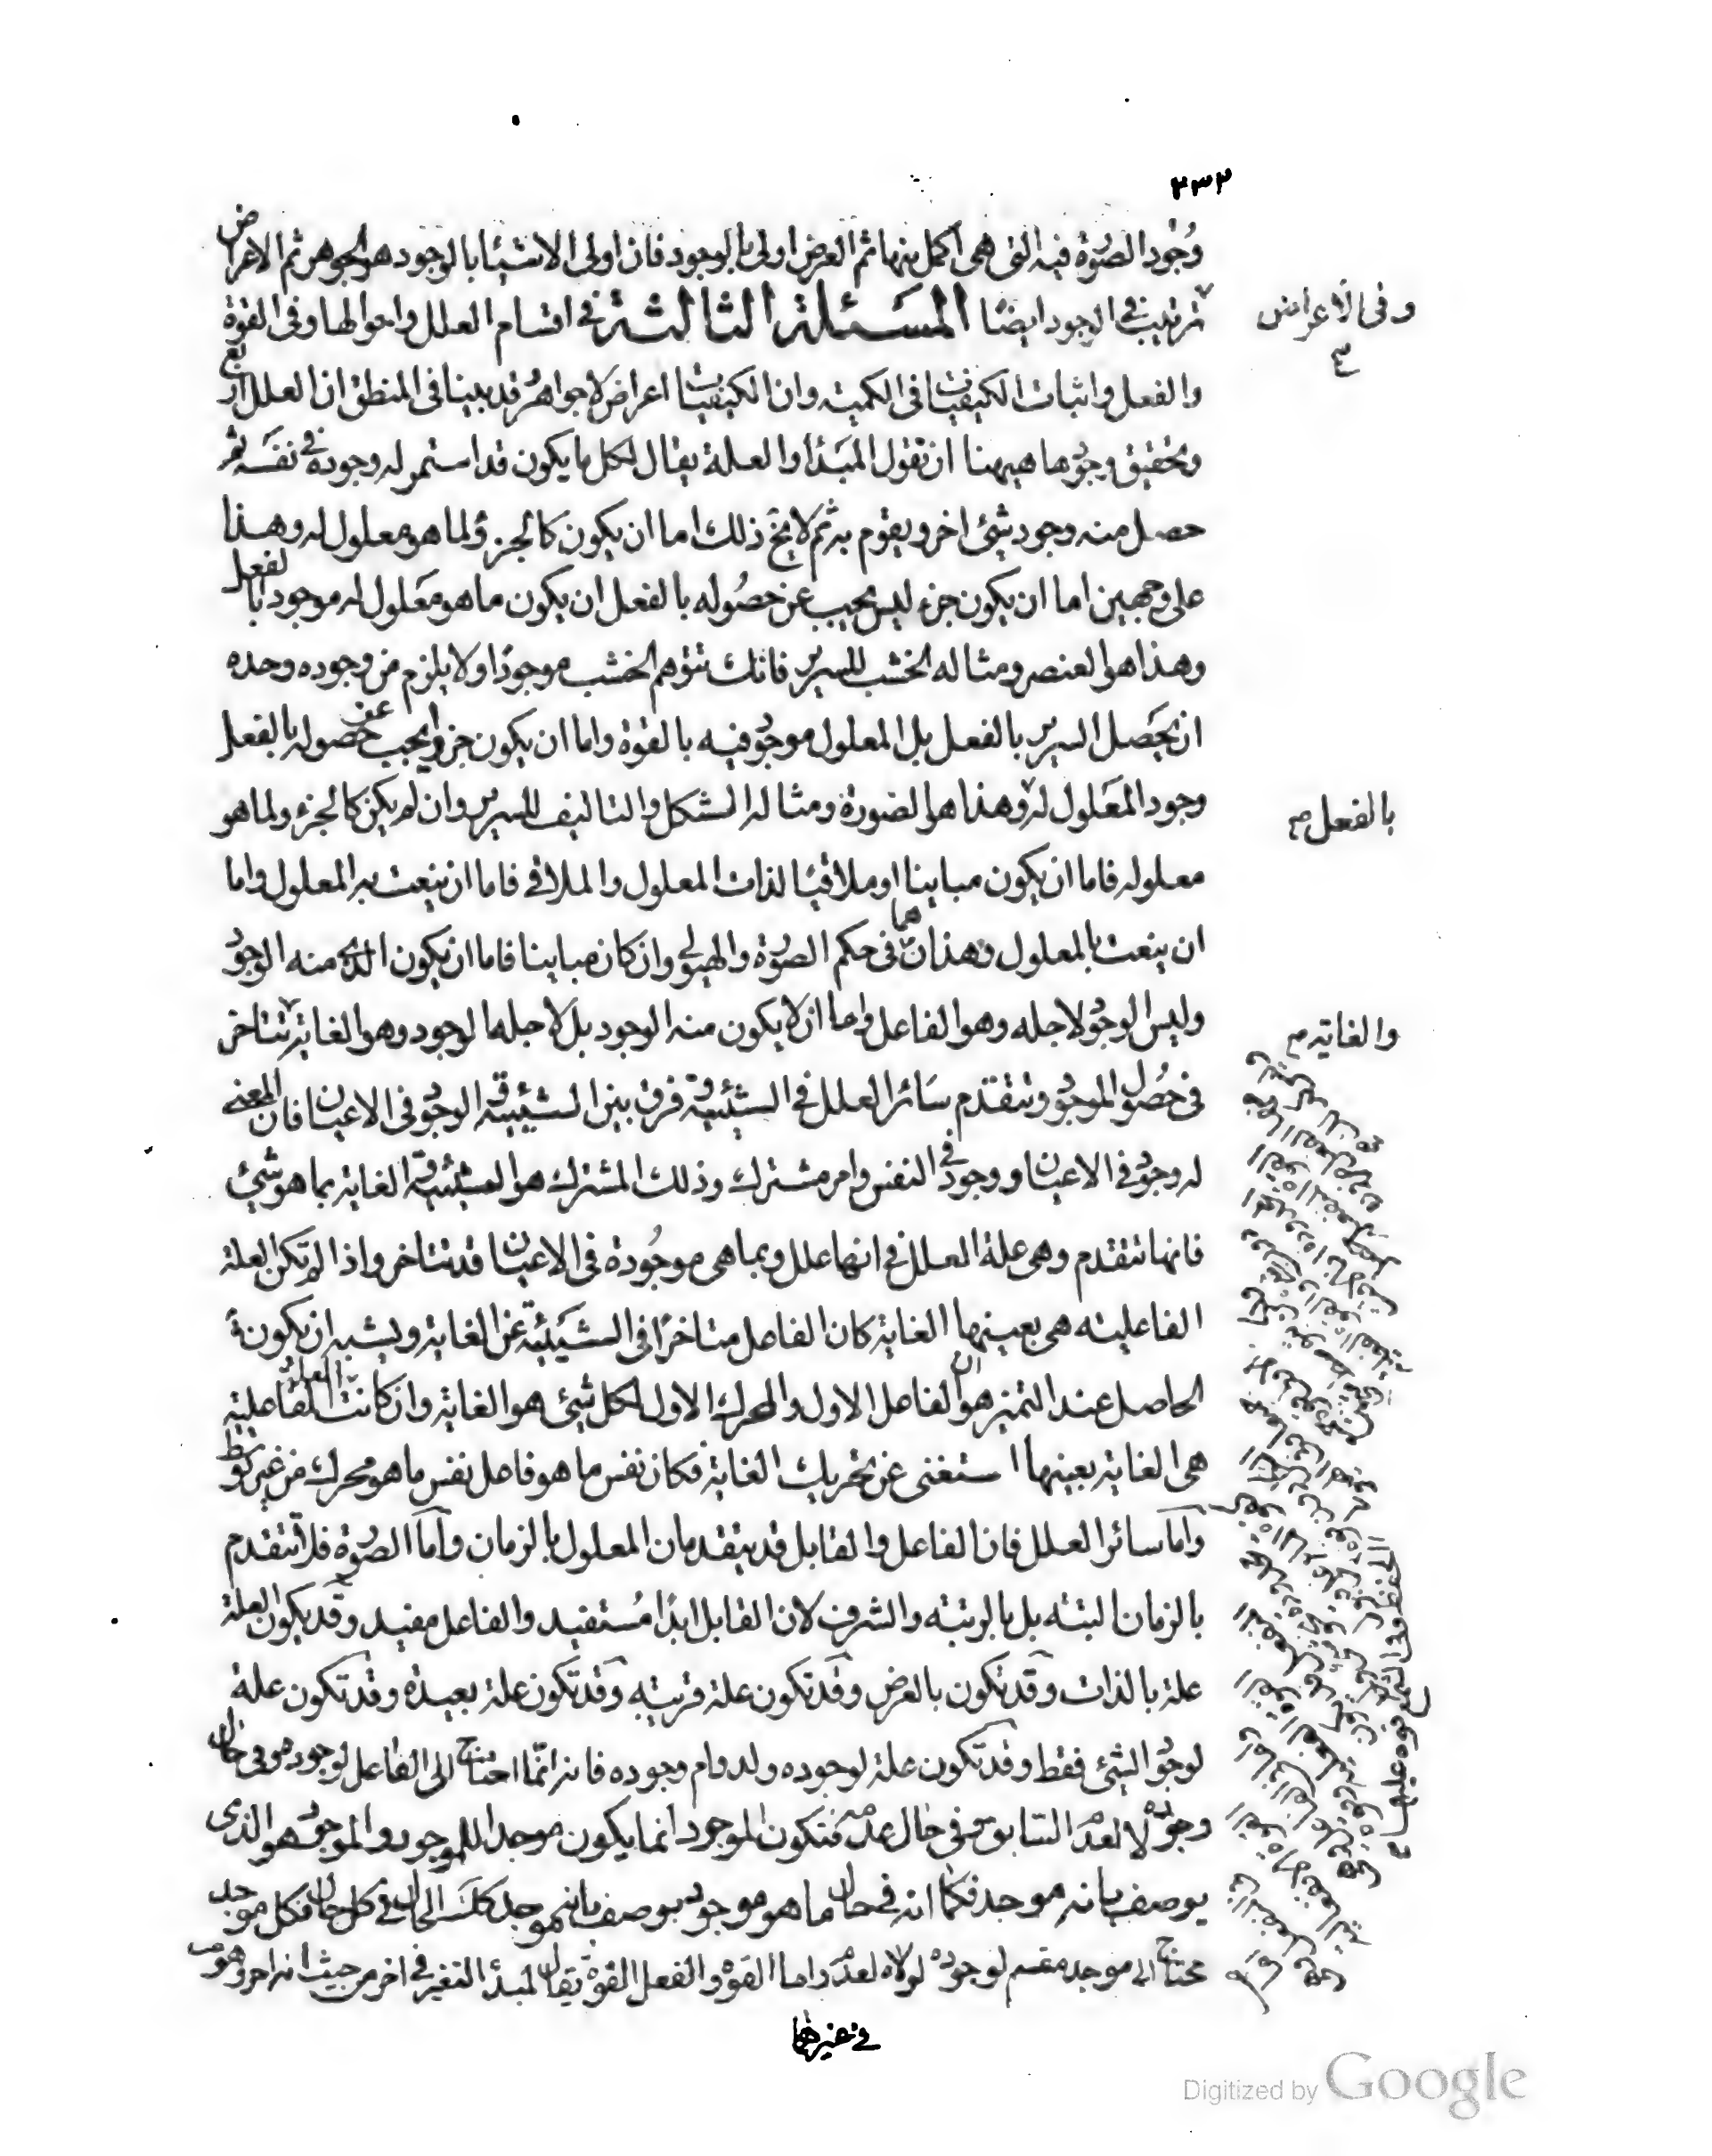 ٣٣٢
وجود الصورة فيه التي هي اكمل منها ثم العرض اولى بالوجود فان اولى الاشيا بالوجود هو الجوهر ثم الاعراض
ترتيب في الوجود ايضا المسئلة الثالثة في اقسام العلل واحوالها وفى القوة
وفى الاعراض
والفعل واثبات الكيفيات فى الكمية وان الكيفيات اعراض لا جواهر قد بينا فى المنطق ان العلل اربع
وتحقيق وجودها هيهنا ان نقول المبدأ والعلة يقال لكل ما يكون قد استمر له وجوده في نفسه ثم
حصل منه وجود شئ اخر ويقوم به ثم لا يخ ذلك اما ان يكون كالجزء لما هو معلول له وهذا
على وجهين اما ان يكون جزء ليس يجب عن حصوله بالفعل ان يكون ما هو معلول له موجودا بالفعل
وهذا هو العنصر ومثاله الخشب للسرير فانك تتوهم الخشب موجودا ولا يلزم من وجوده وحده
ان يحصل السرير بالفعل بل المعلول موجود فيه بالقوة واما ان يكون جزء يجب عن حصوله بالفعل
وجود المعلول له وهذا هو الصورة ومثاله الشكل والتاليف للسرير وان لم يكن كالجزء ولما هو
بالفعل م
معلوله فاما ان يكون مباينا او ملاقيا لذات المعلول والملاقي فاما ان ينعت به المعلول واما
ان ينعت بالمعلول وهذان هما فى حكم الصورة والهيولى وان كان مباينا فاما ان يكون الذي منه الوجود
وليس الوجود لاجله وهو الفاعل واما ان لا يكون منه الوجود بل لاجله الوجود وهو الغاية تتاخر
والغاية م
فى حصول الموجود وتتقدم سائر العلل في الشيئية وفرق بين الشيئية الوجود فى الاعيان فان المعنى
له وجود فى الاعيان ووجود في النفس وامر مشترك وذلك المشترك هو الشيئية الغاية بما هو شئ
فانها تتقدم وهى علة العلل في انها علل وبما هى موجودة فى الاعيان قد تتاخر واذا لم تكن العلة
الفاعليه هى بعينها الغاية كان الفاعل متاخرا فى الشيئية عن الغاية ويشبه ان يكون
الحاصل عند التميز هو ان الفاعل الاول والمحرك الاول لكل شئ هو الغاية وان كانت العلة الفاعلية
هى الغاية بعينها استغنى عن تحريك الغاية فكان نفس ما هو فاعل نفس ما هو محرك من غير توسط
واما سائر العلل فان الفاعل والقابل قد يتقدمان المعلول بالزمان واما الصورة فلا تتقدم
بالزمان البته بل بالرتبته والشرف لان القابل ابدا مستفيد والفاعل مفيد وقد يكون العلة
علة بالذات وقد تكون بالعرض وقد تكون علة قريبه وقد تكون علة بعيدة وقد تكون علة
لوجود الشئ فقط وقد تكون علة لوجوده ولدوام وجوده فانه انما احتاج الى الفاعل لوجوده وفى حال
وجوده لا لعدمه السابق وفى حال عدمه فتكون الموجد انما يكون موجدا للموجود والموجود هو الذى
يوصف بانه موجد فكما انه في حال ما هو موجود يوصف بانه موجد كك الحال في كل حال فكل موجد
محتاج الى موجد مقيم لوجوده لولاه لعدم واما القوة والفعل القوة يقال لمبدأ التغير في اخر من حيث انه اخر وهو
في غيرها
Digitized by Google